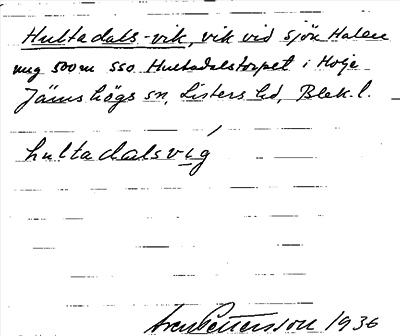 Hultadals-vik, vik vid sjön Halen
500m SSO Hultadalstorpet i Holje
Jämshögs sn, Listers hd, Blek. l.
hultadalsvig
Pettersson 1936